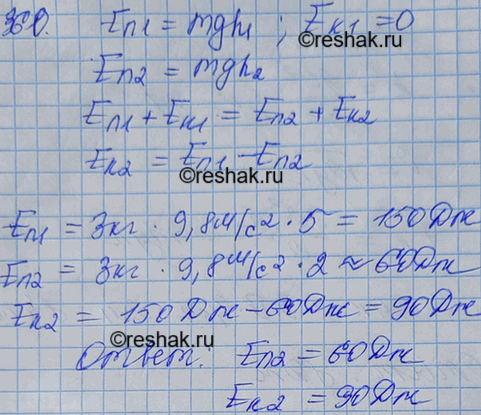 360. Eп1 = mgh1 ; Eк1 = 0
Eп2 = mgh2
Eп1 + Eк1 = Eп2 + Eк2
Eк2 = Eп1 - Eп2
©reshak.ru
Eп1 = 3кг · 9,8м/с² · 5 = 150 Дж
Eп2 = 3кг · 9,8м/с² · 2 ≈ 60 Дж
Eк2 = 150 Дж - 60 Дж = 90 Дж
©reshak.ru
Ответ: Eп2 = 60 Дж
Eк2 = 90 Дж